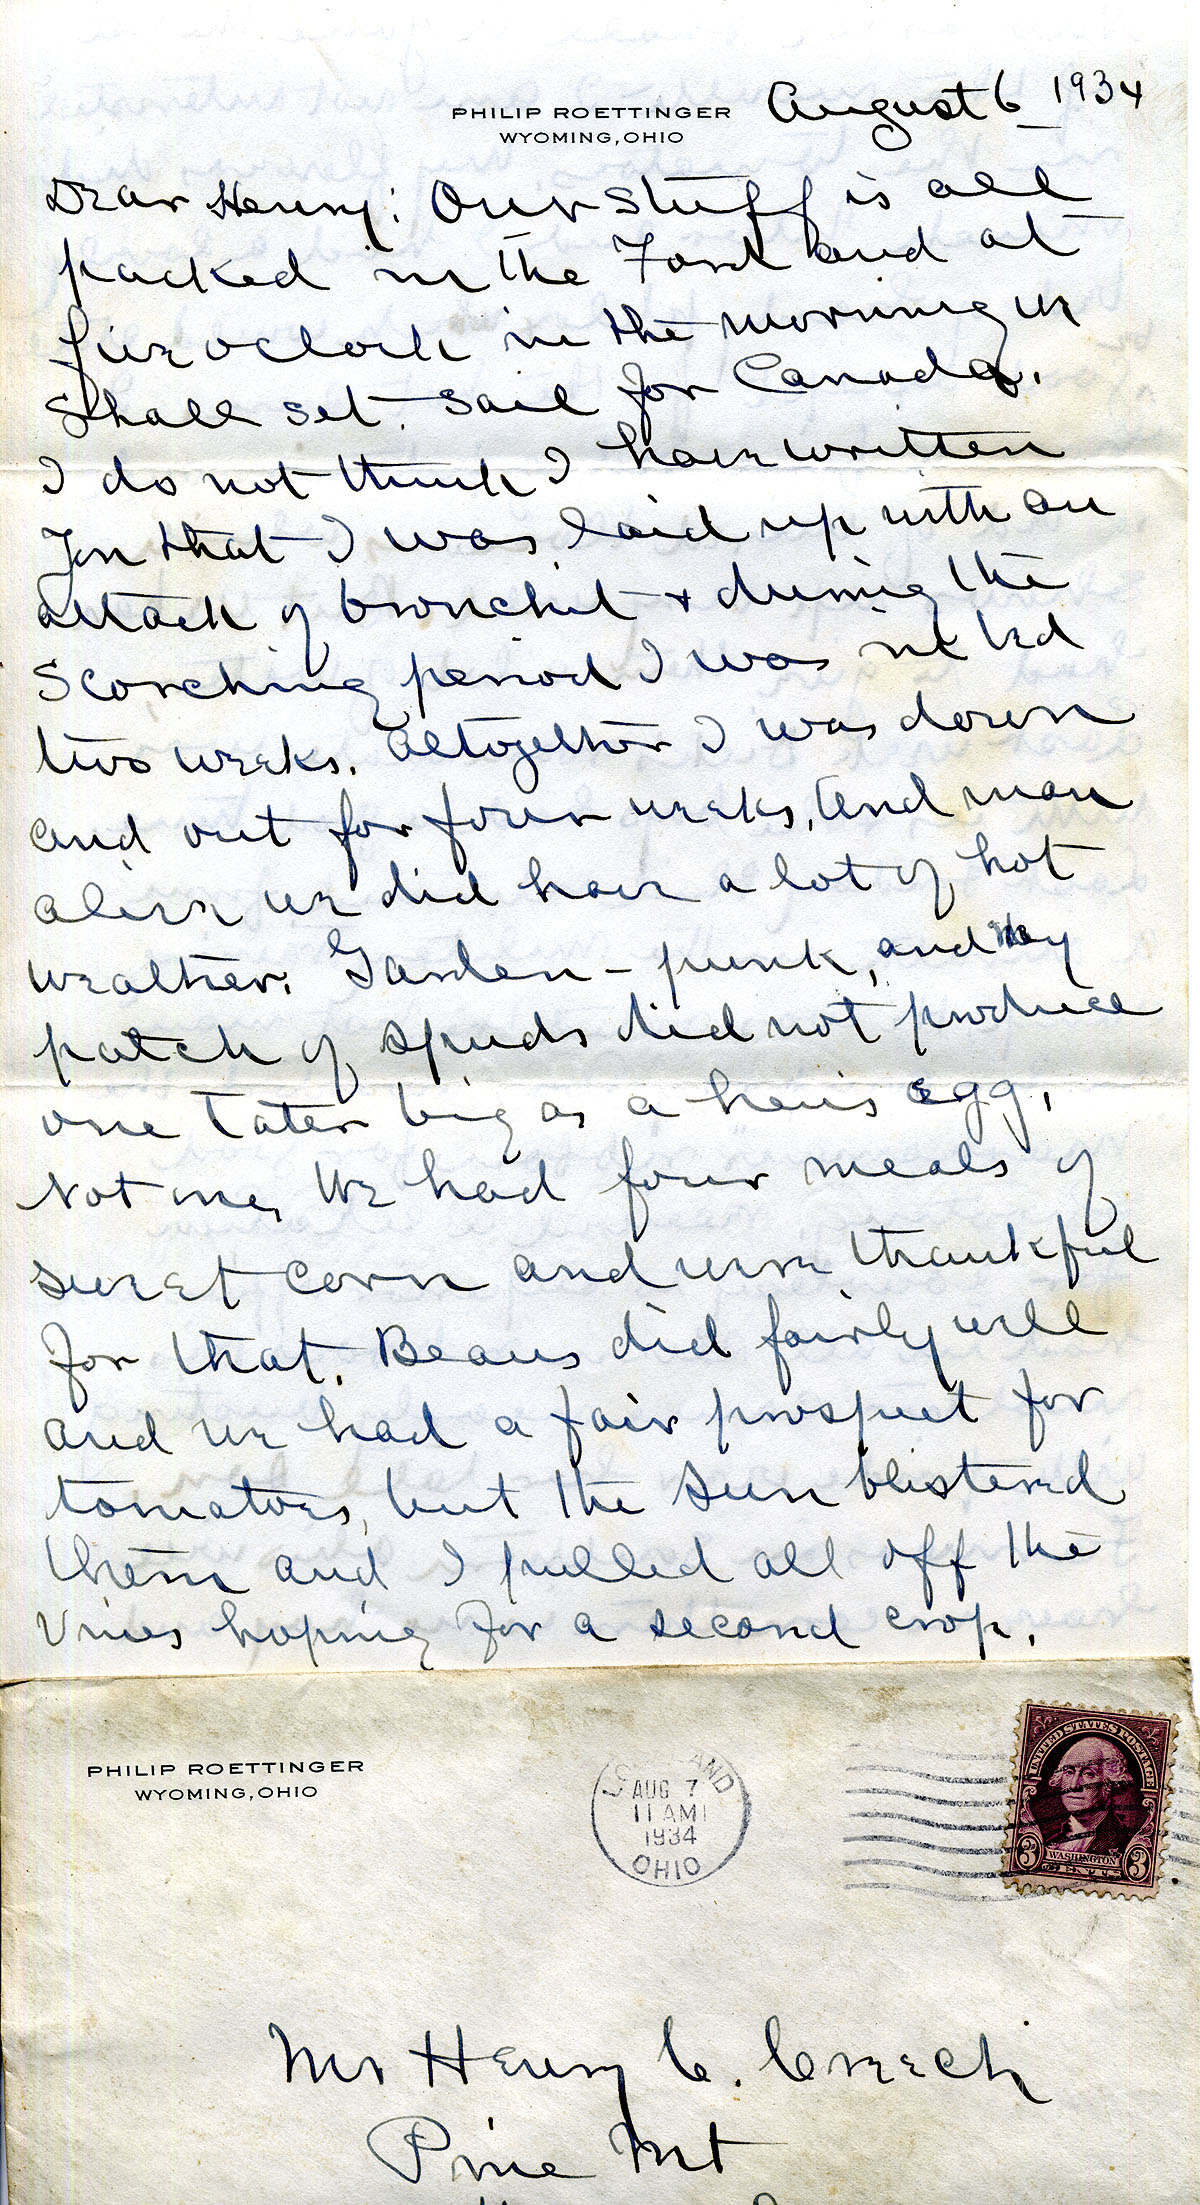 PHILIP ROETTINGER
WYOMING, OHIO
August 6 1934
Dear Henry: Our stuff is all
packed in the Ford and at
five oclock in the morning we
shall set sail for Canada.
I do not think I have written
You that I was laid up with an
attack of bronchit + during the
Scorching period I was in bed
two weeks. Altogether I was down
and out for four weeks, And man
alive we did have a lot of hot
weather. Garden - punk, and my
patch of spuds did not produce
one tater big as a hen's egg,
Not one, We had four meals of
sweet corn and were thankful
for that. Beans did fairly well
and we had a fair prospect for
tomatoes, but the sun blistered
them and I pulled all off the
vines hoping for a second crop.
PHILIP ROETTINGER
WYOMING, OHIO
AUG 7
11 AM
1934
OHIO
UNITED STATES POSTAGE
3 WASHINGTON 3
Mr Henry C. Creech
Pine Mt